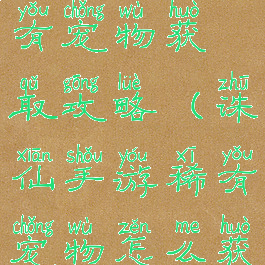 yǒu chǒng wù huò
有宠物获
qǔ gōng lüè zhū
取攻略(诛
xiān shǒu yóu xī yǒu
仙手游稀有
chǒng wù zěn me huò
宠物怎么获